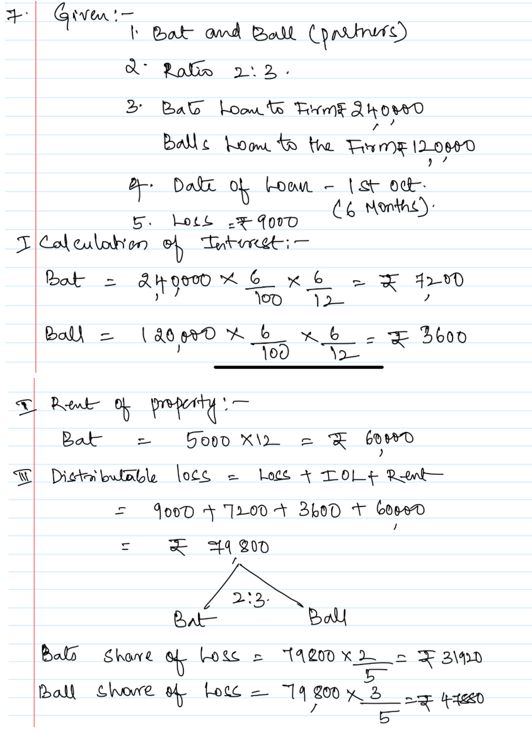 7. Given:-
1. Bat and Ball (partners)
2. Ratio 2:3.
3. Bats Loan to Firm ₹ 240,000
Balls Loan to the Firm ₹ 120,000
4. Date of Loan - 1st oct.
(6 Months).
5. Loss = ₹ 9000
I Calculation of Interest:-
Bat = 240,000 × 6/100 × 6/12 = ₹ 7,200
Ball = 120,000 × 6/100 × 6/12 = ₹ 3600
I Rent of property:-
Bat = 5000 × 12 = ₹ 60,000
III Distributable loss = Loss + IOL + Rent
= 9000 + 7200 + 3600 + 60,000
= ₹ 79,800
2:3.
Bat Ball
Bats share of Loss = 79800 × 2/5 = ₹ 31920
Ball share of Loss = 79,800 × 3/5 = ₹ 47880